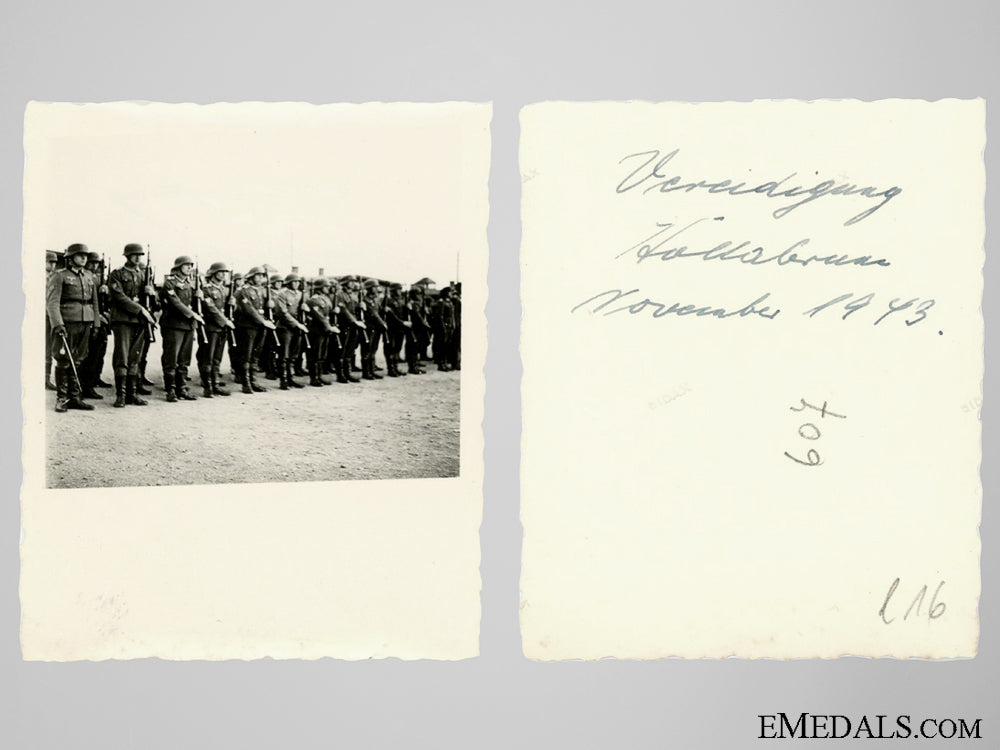 Vereidigung
Hollabrunn
November 1943.
607
l 16
EMEDALS.COM